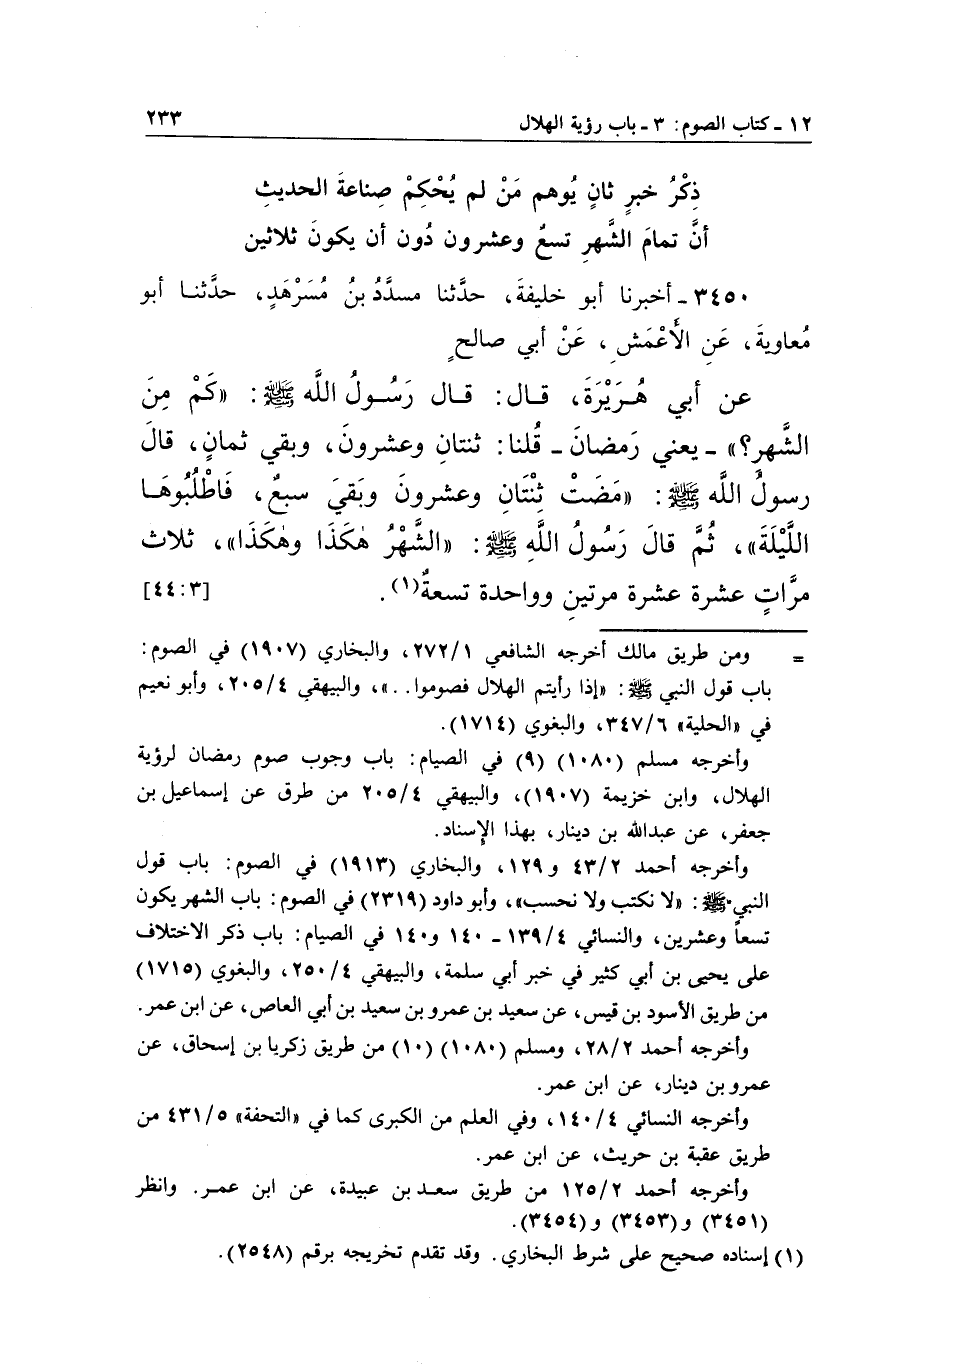 ١٢ ـ كتاب الصوم: ٣ ـ باب رؤية الهلال ٢٣٣
ذِكْرُ خبرٍ ثانٍ يُوهم مَنْ لم يُحْكِمْ صِناعةَ الحديثِ
أنَّ تمامَ الشَّهرِ تسعٌ وعشرون دُون أن يكونَ ثلاثين
٣٤٥٠ ـ أخبرنا أبو خليفةَ، حدَّثنا مسدَّدُ بنُ مُسَرْهَدٍ، حدَّثنـا أبو
مُعاويةَ، عَنِ الأَعْمَشِ، عَنْ أبي صالحٍ
عن أبي هُـرَيْرَةَ، قـال: قـال رَسُـولُ اللَّه ﷺ: «كَمْ مِنَ
الشَّهرِ؟» ـ يعني رَمضانَ ـ قُلنا: ثنتانِ وعشرونَ، وبقي ثمانٍ، قالَ
رسولُ اللَّه ﷺ: «مَضَتْ ثِنْتَانِ وعشرونَ وبَقيَ سبعٌ، فَاطْلُبُوهَـا
اللَّيْلَةَ»، ثُمَّ قالَ رَسُولُ اللَّهِ ﷺ: «الشَّهْرُ هٰكَذَا وهٰكَذَا»، ثلاث
مرَّاتٍ عشرة عشرة مرتينِ وواحدة تسعةٌ(١). [٤٤:٣]
= ومن طريق مالك أخرجه الشافعي ٢٧٢/١، والبخاري (١٩٠٧) في الصوم:
باب قول النبي ﷺ: «إذا رأيتم الهلال فصوموا..»، والبيهقي ٢٠٥/٤، وأبو نعيم
في «الحلية» ٣٤٧/٦، والبغوي (١٧١٤).
وأخرجه مسلم (١٠٨٠) (٩) في الصيام: باب وجوب صوم رمضان لرؤية
الهلال، وابن خزيمة (١٩٠٧)، والبيهقي ٢٠٥/٤ من طرق عن إسماعيل بن
جعفر، عن عبدالله بن دينار، بهذا الإسناد.
وأخرجه أحمد ٤٣/٢ و١٢٩، والبخاري (١٩١٣) في الصوم: باب قول
النبي ﷺ: «لا نكتب ولا نحسب»، وأبو داود (٢٣١٩) في الصوم: باب الشهر يكون
تسعاً وعشرين، والنسائي ١٣٩/٤ ـ ١٤٠ و١٤٠ في الصيام: باب ذكر الاختلاف
على يحيى بن أبي كثير في خبر أبي سلمة، والبيهقي ٢٥٠/٤، والبغوي (١٧١٥)
من طريق الأسود بن قيس، عن سعيد بن عمرو بن سعيد بن أبي العاص، عن ابن عمر.
وأخرجه أحمد ٢٨/٢، ومسلم (١٠٨٠) (١٠) من طريق زكريا بن إسحاق، عن
عمرو بن دينار، عن ابن عمر.
وأخرجه النسائي ١٤٠/٤، وفي العلم من الكبرى كما في «التحفة» ٤٣١/٥ من
طريق عقبة بن حريث، عن ابن عمر.
وأخرجه أحمد ١٢٥/٢ من طريق سعـد بن عبيدة، عن ابن عمـر. وانظر
(٣٤٥١) و(٣٤٥٣) و(٣٤٥٤).
(١) إسناده صحيح على شرط البخاري. وقد تقدم تخريجه برقم (٢٥٤٨).